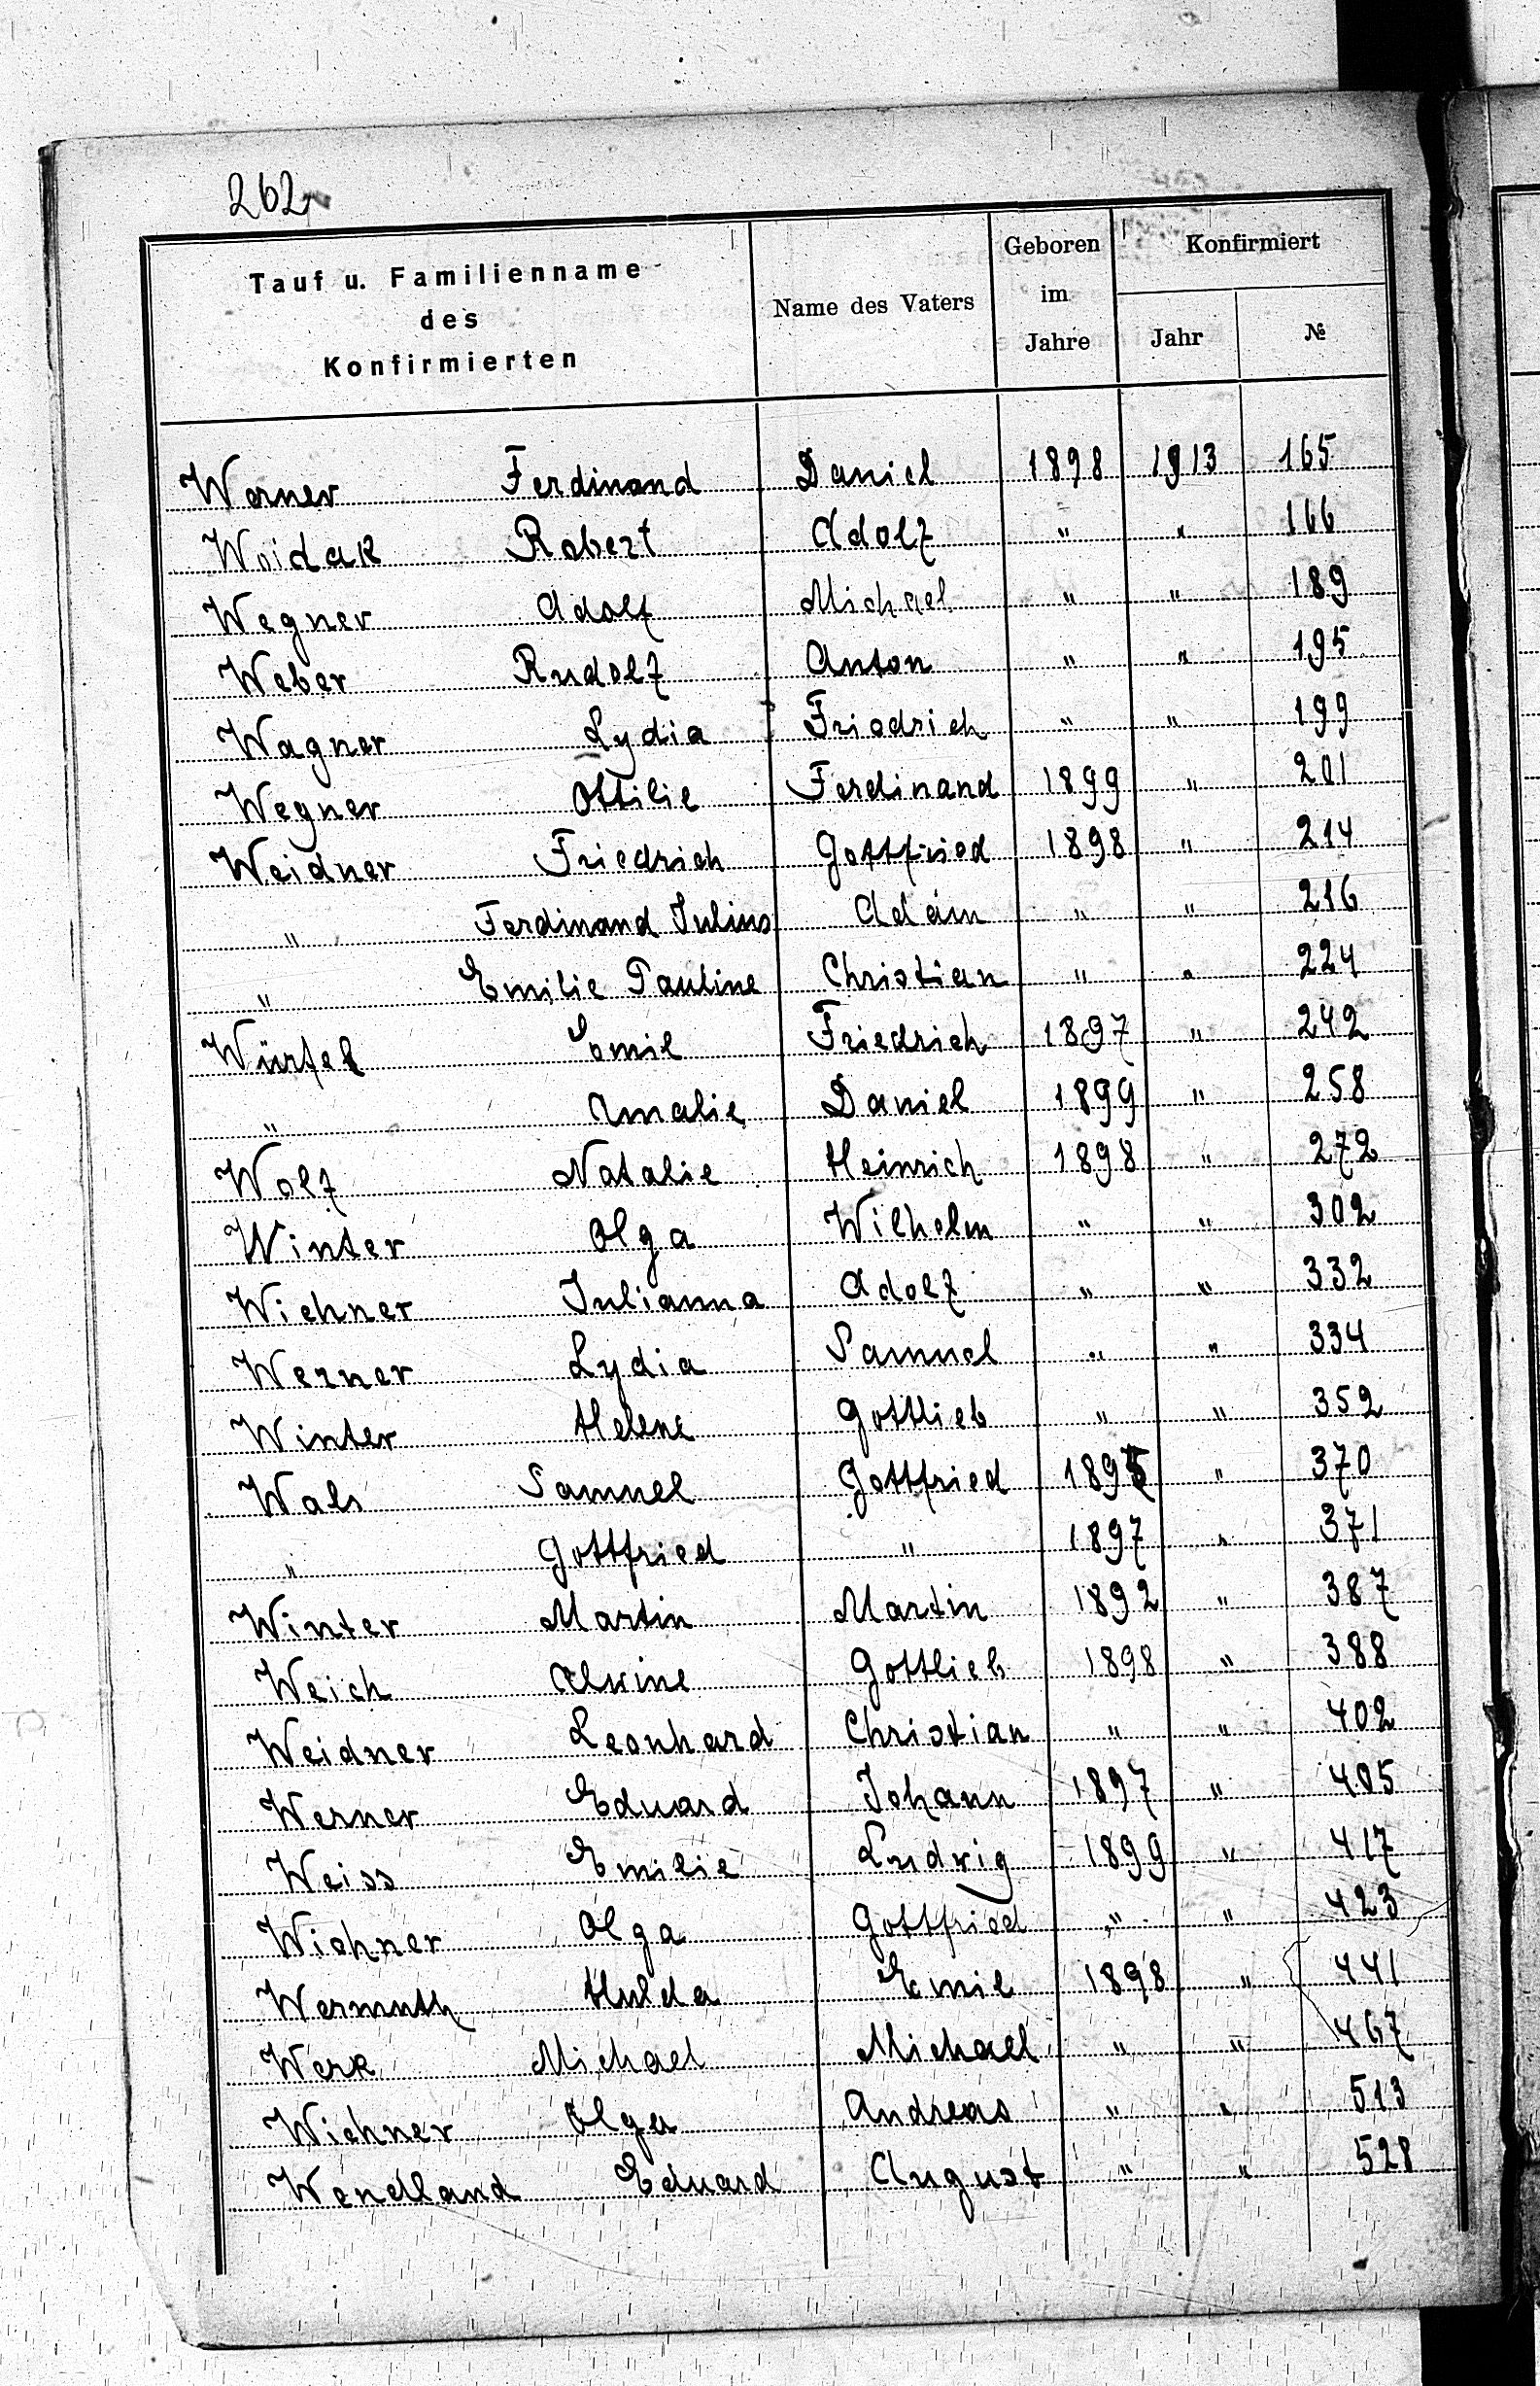 262
Tauf u. Familienname
des
Konfirmierten
Name des Vaters
Geboren
im
Jahre
Konfirmiert
Jahr
№
Werner Ferdinand Daniel 1898 1913 165
Woidak Robert Adolf " " 166
Wegner Adolf Michael " " 189
Weber Rudolf Anton " " 195
Wagner Lydia Friedrich " " 199
Wegner Ottilie Ferdinand 1899 " 201
Weidner Friedrich Gottfried 1898 " 214
" Ferdinand Julius Adam " " 216
" Emilie Pauline Christian " " 224
Würfel Emil Friedrich 1897 " 242
" Amalie Daniel 1899 " 258
Wolf Natalie Heinrich 1898 " 272
Winter Olga Wilhelm " " 302
Wichner Julianna Adolf " " 332
Werner Lydia Samuel " " 334
Winter Helene Gottlieb " " 352
Wals Samuel Gottfried 1895 " 370
" Gottfried " 1897 " 371
Winter Martin Martin 1892 " 387
Weich Alwine Gottlieb 1898 " 388
Weidner Leonhard Christian " " 402
Werner Eduard Johann 1897 " 405
Weiss Emilie Ludwig 1899 " 417
Wichner Olga Gottfried " " 423
Wermuth Hulda Emil 1898 " 441
Werk Michael Michael " " 467
Wichner Olga Andreas " " 513
Wendland Eduard August " " 528